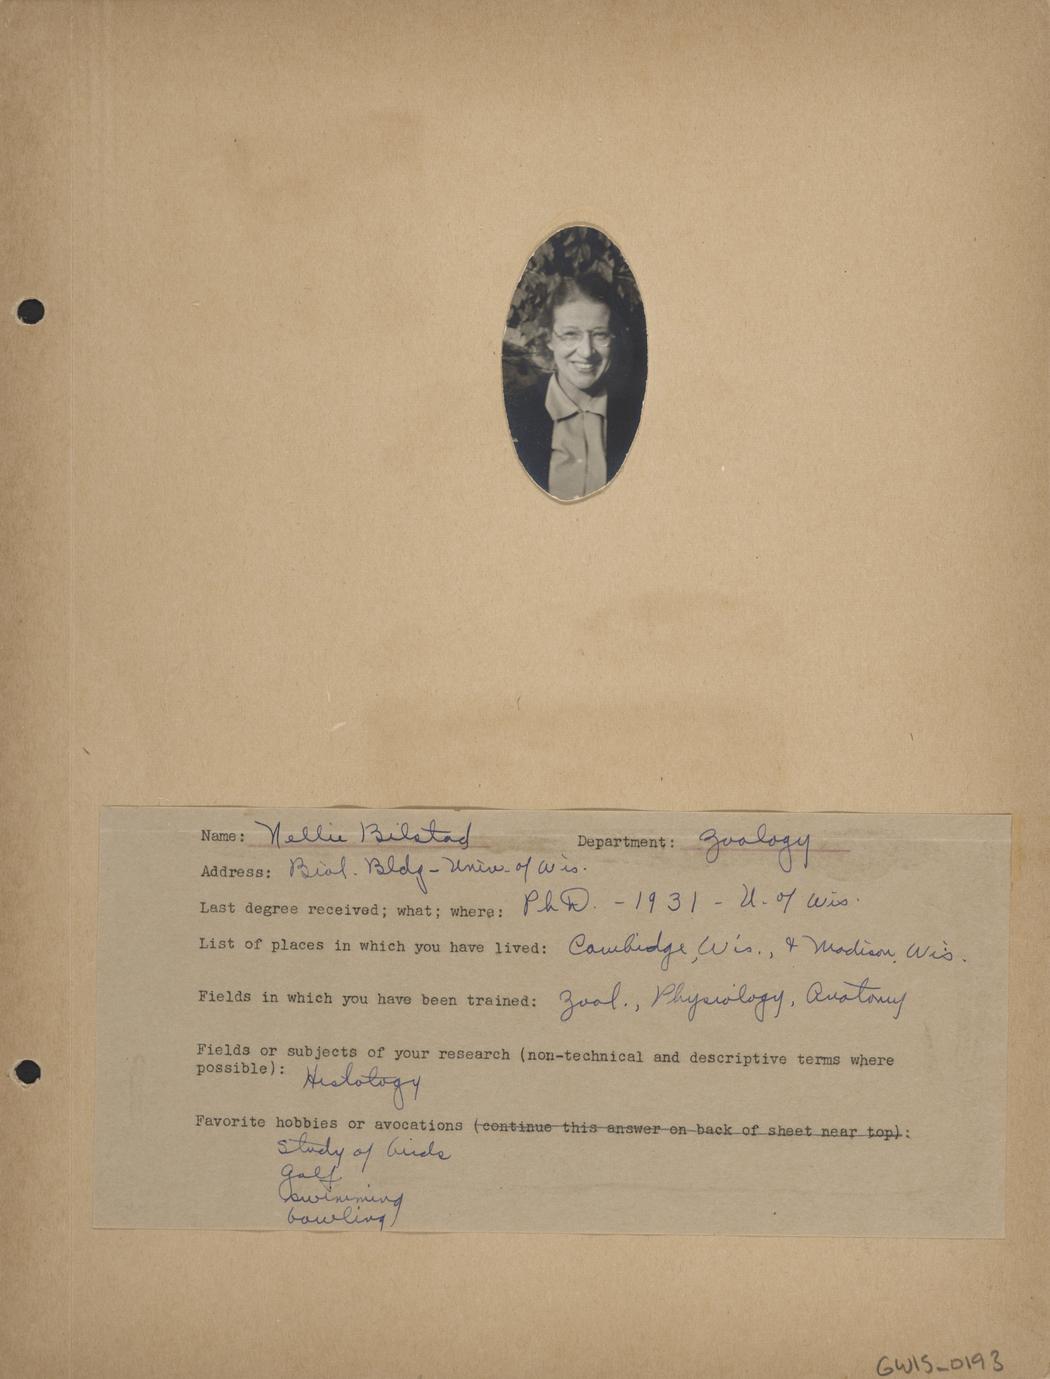 Name: Nellie Bilstad Department: Zoology
Address: Biol. Bldg - Univ. of Wis.
Last degree received; what; where: Ph.D. - 1931 - U. of Wis.
List of places in which you have lived: Cambridge, Wis., & Madison, Wis.
Fields in which you have been trained: Zool., Physiology, Anatomy
Fields or subjects of your research (non-technical and descriptive terms where
possible): Histology
Favorite hobbies or avocations (continue this answer on back of sheet near top):
Study of birds
golf
swimming
bowling
GWIS_0193